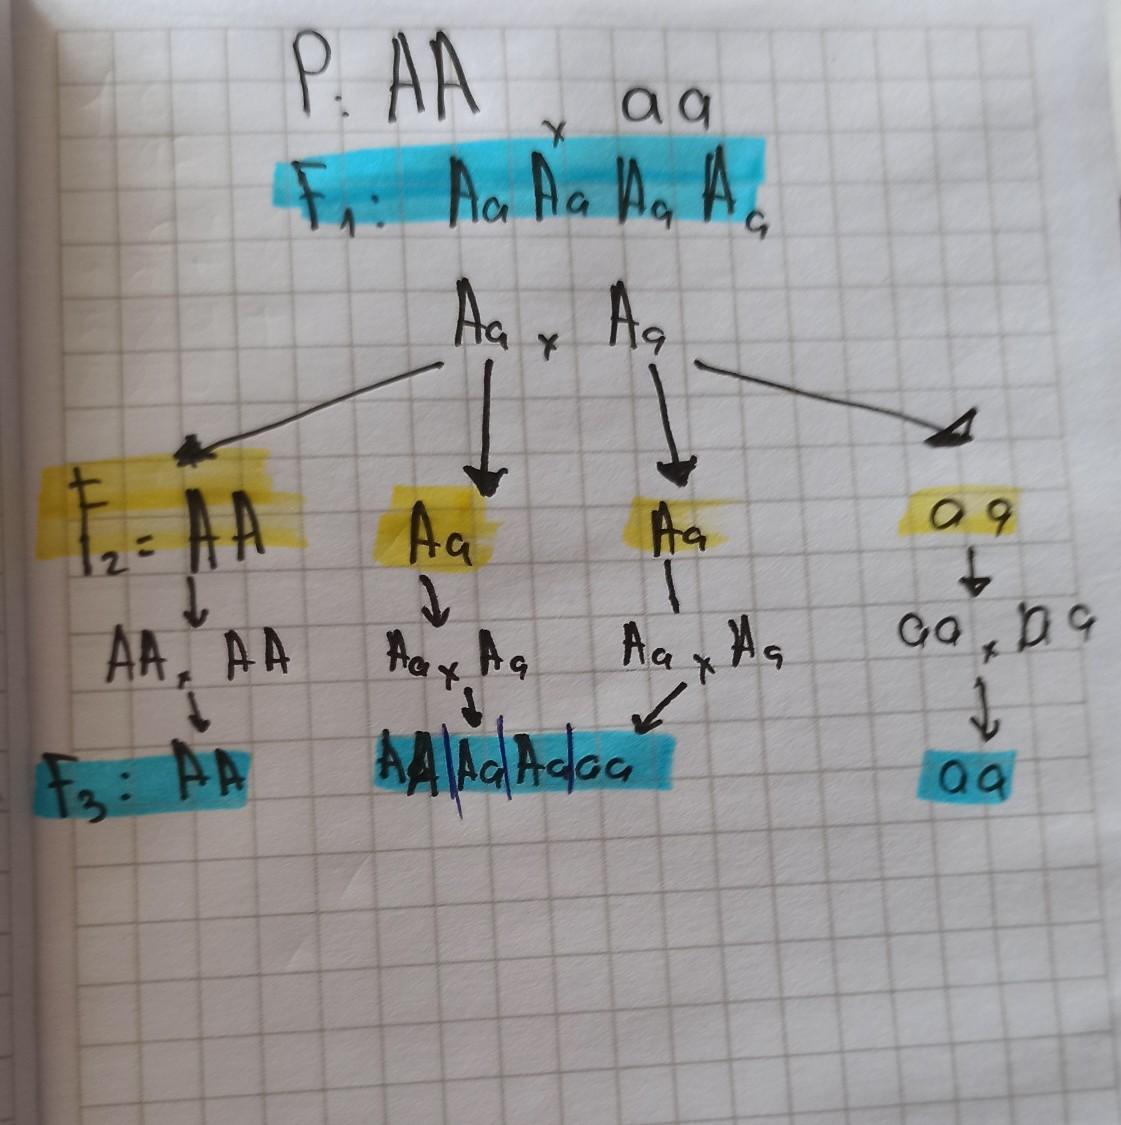 P: AA x aa
F1: Aa Aa Aa Aa
Aa x Aa
F2= AA Aa Aa aa
AA x AA Aa x Aa Aa x Aa aa x aa
F3: AA AA|Aa|Aa|aa aa